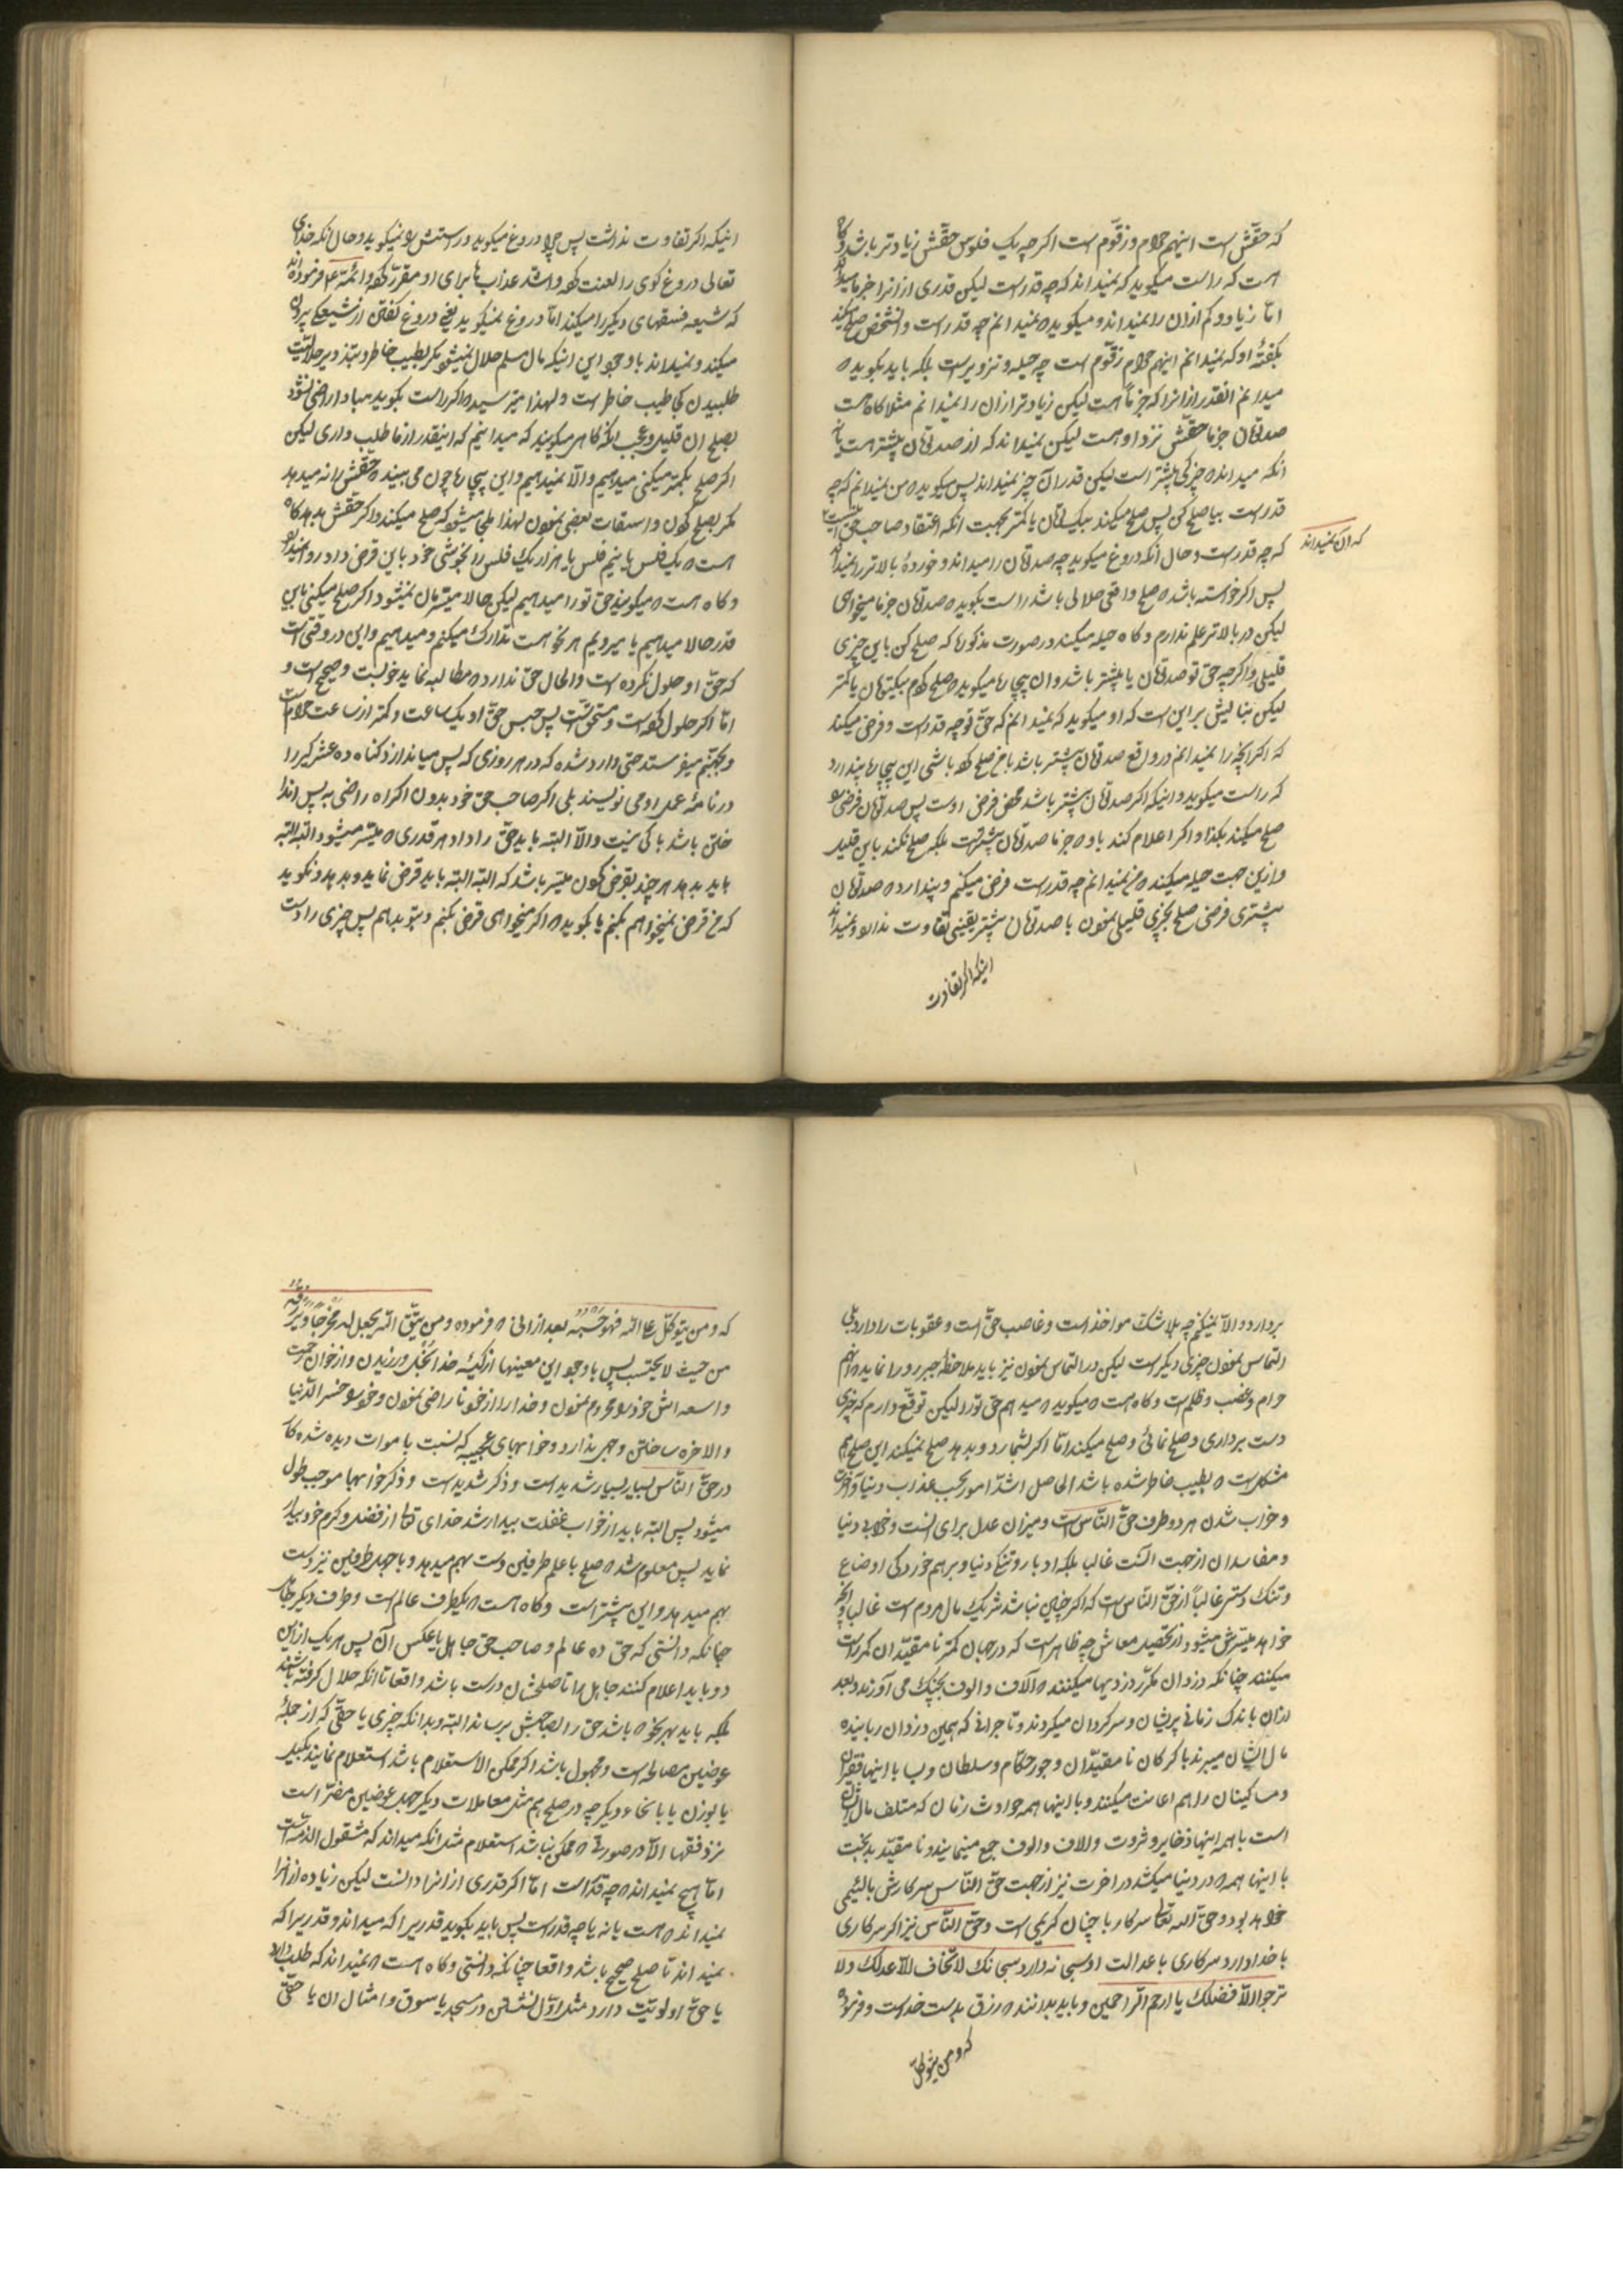 که حقّش است اینهم حرام و زقّوم است اگر چه یک فلوس حقّش زیادتر باشد و گاه
است که راست میگوید که نمیداند که چه قدر است لیکن قدری از انرا جزما میداند
امّا زیاد و کم ازان را نمیداند و میگوید که نمیدانم چه قدر است و انشخص صلح میکند
بگفتهٔ او که نمیدانم اینهم حرام زقّوم است چه حیله و تزویر است بلکه باید بگوید که
میدانم انقدر از انرا که جزماً هست لیکن زیادتر ازان را نمیدانم مثلا گاه هست
صد تومان جزما حقّش نزد او هست لیکن نمیداند که از صد تومان بیشتر هست یا نه
انکه میداند که چیزکی بیشتر است لیکن قدر آن چیز نمیداند پس میگوید که من نمیدانم که چه
قدر است بیا صلح کن پس صلح میکند بیک تومان یا کمتر بجهت انکه اعتقاد صاحب حق
که ان نمیداند
که چه قدر است و حال انکه دروغ میگوید چه صد تومان را میداند و خوردهٔ بالاتر را نمیداند
پس اگر خواسته باشد که صلح واقعی حلالی باشد راست بگوید که صد تومان جزما میخواهی
لیکن در بالاتر علم ندارم و گاه حیله میکند در صورت مذکوره که صلح کن باین چیزی
قلیلی و اگرچه حق تو صد تومان یا بیشتر باشد و ان بیچاره میگوید که صلح کردم بیکتومان یا کمتر
لیکن بنایش بر این است که او میگوید که نمیدانم که حق تو چه قدر است و فرض میکند
که اگر انچه را نمیدانم در واقع صد تومان بیشتر باشد باخ صلح کرده باشی این بیچاره پندارد
که راست میگوید و اینکه اگر صد تومان بیشتر باشد محض فرض اوست پس صد تومان فرضی را
صلح میکند بکذا و اگر اعلام کند باو که جزما صد تومان بیشتر است بلکه صلح نکند باین قلیل
و ازین جهت حیله میکند که من نمیدانم چه قدر است فرض میکنم و پندارد که صد تومان
بیشتری فرضی صلح بچیزی قلیلی نمودن با صد تومان بیشتر یقینی تفاوت ندارد و نمیداند
اینکه اگر تفاوت
اینکه اگر تفاوت نداشت پس چرا دروغ میگوید و راستش را نمیگوید و حال انکه خدای
تعالی دروغ گوی را لعنت کرده و اشد عذابها برای او مقرّر کرده و ائمّه ع فرموده اند
که شیعه فسقهای دیگر را میکند امّا دروغ نمیگوید یعنی دروغ گفتن از شیعگی بیرون
میکند و نمیداند باوجود این اینکه مال مسلم حلال نمیشود مگر بطیب خاطر و بتزویر حلالیت
طلبیدن کجا طیب خاطر است و لهذا میترسید که اگر راست بگوید مبادا راضی نشود
بصلح ان قلیل و عجب انکه گاهی میگویند که میدانیم که اینقدر از ما طلب داری لیکن
اگر صلح بکمتر میکنی میدهیم و الّا نمیدهیم و این بیچاره چون می بیند که حقّش را نمیدهد
مگر بصلح کردن و اسقاط بعضی نمودن لهذا ملجا میشود که صلح میکند و اگر حقّش بدهد گاه
هست که یک فلس یا نیم فلس یا هزار یک فلس را بخوشی خود باین قرض دار روا نمیدارد
و گاه هست که میگویند حق تو را میدهیم لیکن حالا میسّرمان نمیشود اگر صلح میکنی باین
قدر حالا میدهیم یا میرویم هر نحو هست تدارک میکنیم و میدهیم و این در وقتی است
که حقّ او حلول نکرده است و الحال حق ندارد که مطالبه نماید خوبست و صحیح است و
امّا اگر حلول کرده است و مستحق است پس حبس حقّ او یک ساعت و کمتر از ساعت حرام است
و بجهنّم میفرستد حتی وارد شده که در هر روزی که پس میاندازد گناه ده عشر گیر را
در نامهٔ عمل او می نویسند بلی اگر صاحب حق خود بدون اکراه راضی به پس اندا
ختن باشد باکی نیست و الّا البته باید حقّ را داد هر قدری که میسّر میشود البته البته
باید بدهد هر چند بقرض کردن میسّر باشد که البته البته باید قرض نماید و بدهد و نگوید
که من قرض نمیخواهم بکنم یا بگوید که اگر میخواهی قرض بکنم و بتو بدهم پس چیزی را دست
بردارد و الّا نمیکنم چه بلا شک مواخذ است و غاصب حقّ است و عقوبات را دارد بلی
التماس نمودن چیزی دیگر است لیکن در التماس نمودن نیز باید ملاحظه جبر و را نماید که انهم
حرام و غضب و ظلم است و گاه هست که میگوید که میدهم حق تو را لیکن توقّع دارم که چیزی
دست برداری و صلح نمائی و صلح میکند امّا اگر بشمارد و بدهد صلح نمیکند این صلح هم
مشکل است که بطیب خاطر شده باشد الحاصل اشدّ امور بحسب عذاب دنیا و آخرت
و خراب شدن هر دو طرف حق النّاس است و میزان عدل برای انست و خرابی دنیا
و مفاسد ان از جهت انست غالبا بلکه ادبار و تنگی دنیا و برهم خوردگی اوضاع
و تنگ دستی غالباً از حق النّاس است که اگر چنین نباشد شریک مال مردم است غالبا و انچه
خواهد میسّرش میشود از تحصیل معاش چه ظاهر است که درجهان کمتر نامقیّدان کمراست
میکنند چنانکه دزدان مکرّر دزدیها میکنند که آلاف و الوف بچنگ می آورند و بعد
ازان باندک زمانی پریشان و سرگردان میگردند و تاجرانی که همین دزدان رباینده
مال ایشان میبرند با گرگان نامقیّدان و جور حکّام و سلطان و با اینها فقیران
و مسکینان را هم اعانت میکنند و با اینها همه حوادث زمان که متلف مال ایشان
است با همه اینها ذخایر و ثروت و الاف و الوف جمع مینمایند و نامقیّد بدبخت
با اینها همه که در دنیا میکشد در اخرت نیز از جهت حقّ النّاس سرکارش بالئیمی
خواهد بود و حقّ الله تعالی سرکار با چنان کریمی است و حقّ النّاس نیز اگر سرکاری
با خدا دارد سرکاری با عدالت او سبحانه دارد سبحانک لا تخاف الّا عدلک و لا
ترجوا الّا فضلک یا ارحم الرّاحمین و باید بدانند که رزق بدست خداست و فرموده
که و من یتوکّل
که و من یتوکّل علی اللّه فهو حسبه بعد از انی که فرموده و من یتّق اللّه یجعل له مخرجا و یرزقه
من حیث لا یحتسب پس باوجود این معینها از کیسهٔ خدا بُخل ورزیدن و از خوان رحمت
واسعه اش خود را محروم نمودن و خدا را از خود ناراضی نمودن و خود را خسر الدّنیا
و الاخره ساختن وجهی ندارد و خوابهای عجیبه که نسبت باموات دیده شده که
در حقّ النّاس بسیار بسیار شدید است و ذکر شدید است و ذکر خوابها موجب طول
میشود پس البته باید از خواب غفلت بیدار شد خدای تعالی از فضل و کرم خود بیدار
نماید پس معلوم شد که صلح با علم طرفین دست بهم میدهد و با جهل طرفین نیز دست
بهم میدهد و این بیشتر است و گاه هست که یکطرف عالم است و طرف دیگر جاهل
چنانکه دانستی که حق ده عالم و صاحب حق جاهل یا عکس آن پس هر یک ازین
دو باید اعلام کنند جاهل را تا صلحشان درست باشد واقعا تا انکه حلال گرفته باشند
بلکه باید بهر نحو که باشد حق را بصاحبش برساند البته و بدانکه چیزی یا حقّی که از جملهٔ
عوضین مصالحه است و مجهول باشد اگر ممکن الاستعلام باشد استعلام نمایند بکیل
یا بوزن یا بانحاء دیگر چه در صلح هم مثل معاملات دیگر جهل عوضین مضرّ است
نزد فقها الّا در صورتی که ممکن نباشد استعلام مثل انکه میداند که مشغول الذمه است
امّا هیچ نمیداند که چه قدر است امّا اگر قدری از انرا دانست لیکن زیاده از انرا
نمیداند که هست یا نه یا چه قدر است پس باید بگوید قدریرا که میداند و قدریرا که
نمیداند تا صلح صحیح باشد واقعا چنانکه دانستی و گاه هست که نمیداند که طلب دارد
یا حقّ اولویّت دارد مثل اوّل نشستن در مسجد یا سوق و امثال ان یا حقّی